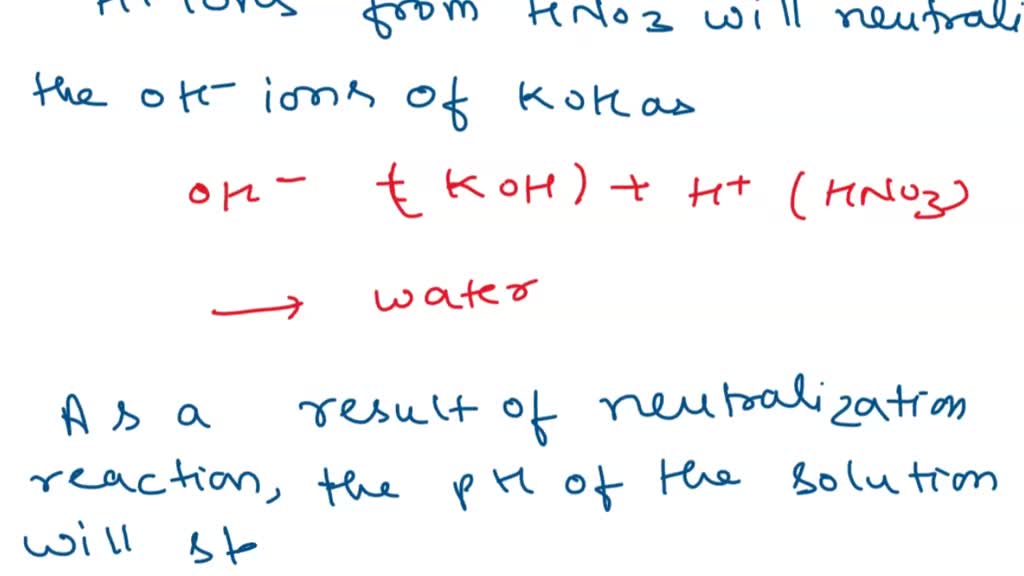 H+ ions from HNO3 will neutrali
the OH- ions of KOH as
OH- (KOH) + H+ (HNO3)
→ water
As a result of neutralization
reaction, the pH of the solution
will st